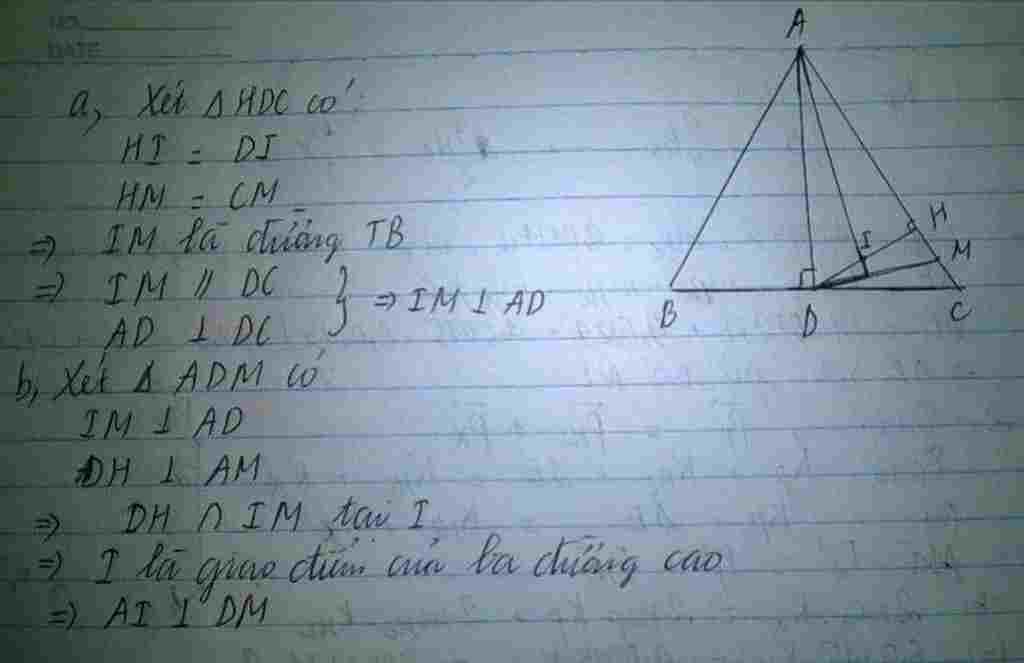 NO.
DATE
a, Xét Δ HDC có:
HI = DI
HM = CM
=> IM là đường TB
=> IM // DC
AD ⊥ DC } => IM ⊥ AD
b, Xét Δ ADM có
IM ⊥ AD
DH ⊥ AM
=> DH ∩ IM tại I
=> I là giao điểm của ba đường cao
=> AI ⊥ DM
A
H
I
M
B
D
C